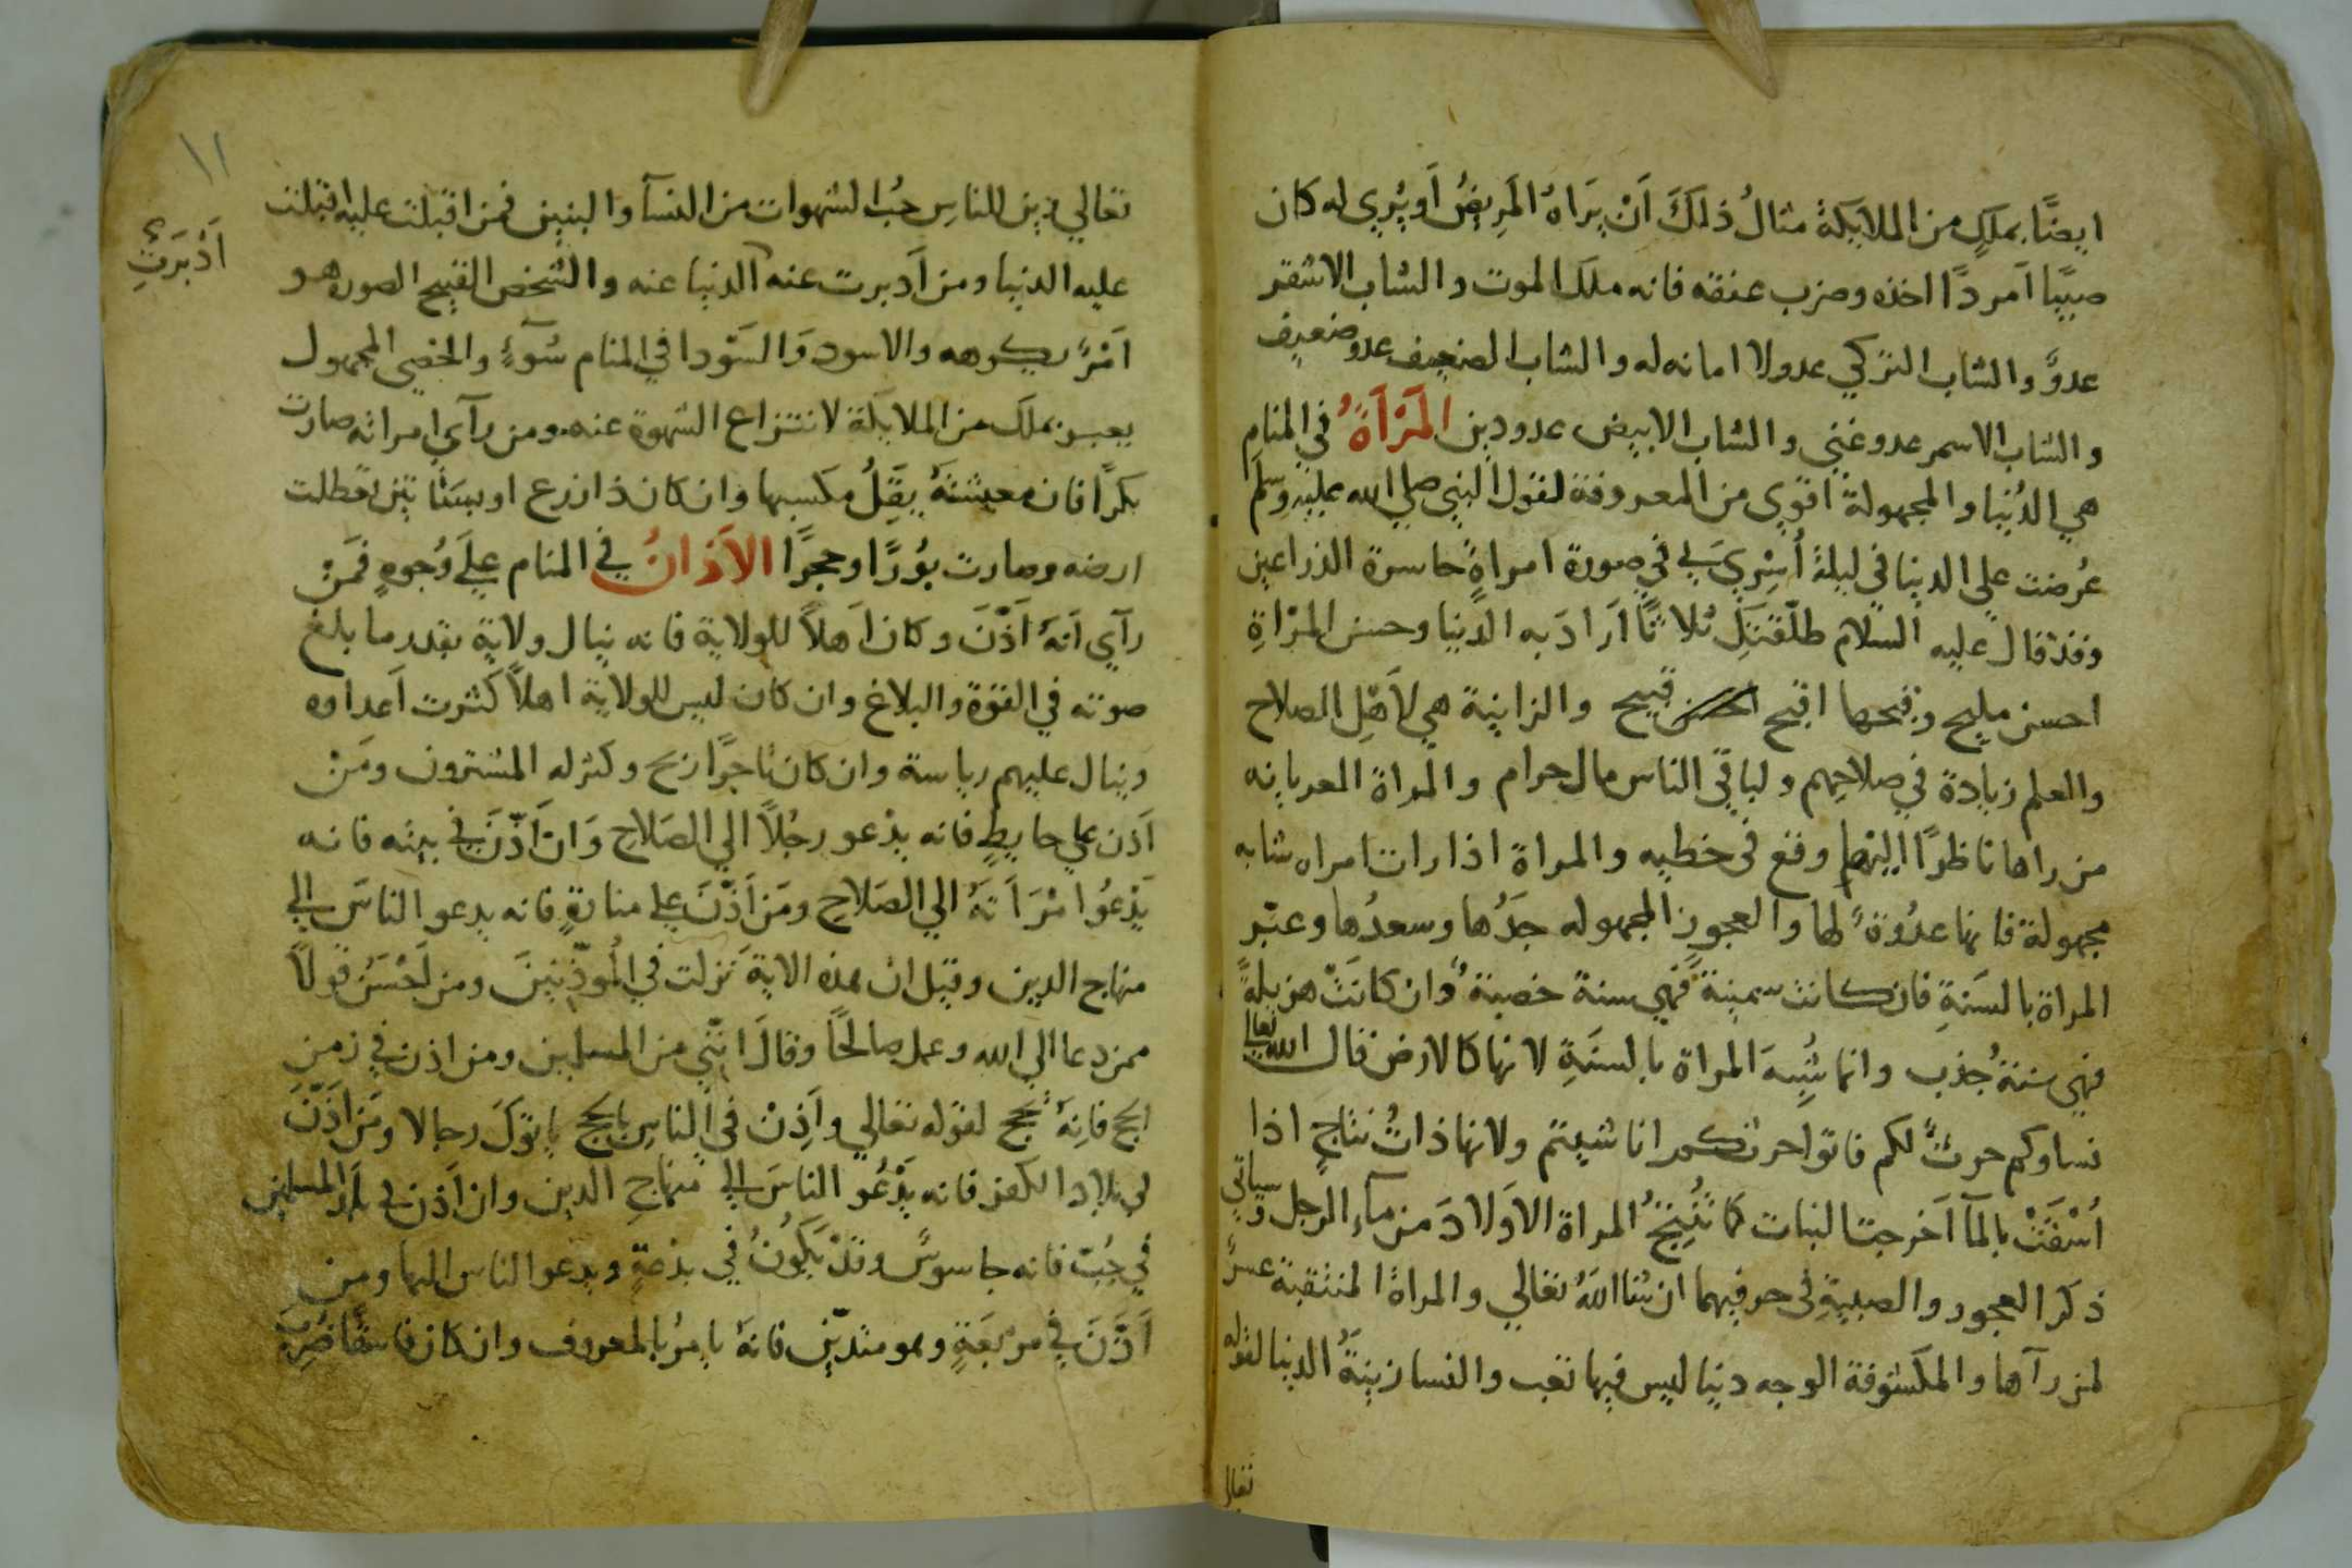 ايضًا بملكٍ من الملايكة مثالُ ذلكَ اَنْ يَرَاهُ المَرِيضُ اَو يُرى له كان
صبيًا اَمردًا اخذه وضرب عنقه فانه ملك الموت والشاب الاشقر
عدوٌّ والشاب التركي عدو لا امانه له والشاب الضعيف عدو ضعيف
والشاب الاسمر عدو غني والشاب الابيض عدو دين المَرْاَةُ في المنام
هي الدُنيا والمجهولة اقوى من المعروفة لقول النبي صلي الله عليه وسلم
عُرضت علي الدنيا في ليلة اُسْرِيَ بي في صورة امراةٍ حاسرة الذراعين
وقد قال عليه السلام طلّقتكِ ثلاثًا اَرَادَ به الدنيا وحسن المرْاةِ
احسن مليح وقبحها اقبح قبيح والزانية هي لاَهْلِ الصلاح
والعلم زيادة في صلاحهم ولباقي الناس مال حرام والمراة العريانه
من راها ناظرًا اليها وقع في خطيه والمراة اذا رات امراه شابه
مجهولة فانها عدُوّة لها والعجوز المجهوله جَدُها وسعدُها وعبّر
المراة بالسَنَةِ فان كانت سمينة فهي سنة خصبة وان كانَتْ هزيلةً
فهي سنةُ جُذب وانما شُبِهَ المراة بالسنَةِ لانها كالارض قال الله تعالى
نساوكم حرثٌ لكم فاتوا حرثكم انا شيتم ولانها ذاتُ نتاجٍ اذا
اُسْقَتْ بالمآ اَخرجت النبات كما تُنتِجُ المراة الاَولادَ من مآءِ الرجل وسياتي
ذكر العجوز والصبيةِ في حرفيهما ان شا اللهُ تعالي والمراةُ المنتقبة عسرٌ
لمن رآها والمكشوفة الوجه دنيا ليس فيها تعب والنسا زينةُ الدنيا لقوله
تعالي
١١
تعالي زين للناسِ حُب الشهوات من النسآ والبنين فمن اقبلت عليه اقبلت
اَدْبَرَتِ
عليه الدنيا ومن اَدبرت عنه الدنيا عنه والشخص القبيح الصوره هو
اَمْرٌ يكرهه والاسود وَالسَوْدا في المنام سُوءٌ والخصي المجهول
يعبر بملك من الملايكة لانتزاع الشهوة عنه ومن رآي امراته صارت
بكرًا فان معيشتهُ يَقِلُ مكسبها وان كان ذا زرع او بسَتاتين تعطلت
ارضه وصارت بُورًا وحجرًا الاَذانُ في المنام علَي وُجوهٍ فمَنْ
رآي اَنهُ اَذّنَ وكان اَهلاً للولاية فانه ينال ولاية بقدر ما بلغ
صوته في القوة والبلاغ وان كان ليس للولاية اهلاً كثرت اَعداوه
وينال عليهم رياسة وان كان تاجرًا ربح وكثر له المشترون ومَنْ
اَذن علي حايطٍ فانه يدْعو رجُلاً الي الصَلاحِ وَان اَذّنَ في بيته فانه
يَدْعُوا امْرَاَتهُ الي الصَلاحِ ومَن اَذّنَ علي منارةٍ فانه يدعو الناسَ الي
منهاج الدين وقيل ان هذه الاية نزلت في المُوذّنينَ ومن اَحْسَنُ قولاً
ممن دعا الي الله وعمل صالحًا وقالَ انّني من المسلمين ومن اذن في زمن
الحج فانهُ يحج لقوله تعالي واَذِنْ في الناسِ بالحج ياتوكَ رجالا ومَن اَذّنَ
في بلاد الكفر فانه يَدْعُو الناسَ الي منهاجِ الدين وان اَذن في بلد المسلمين
في جُبّ فانه جاسوسٌ وقدْ يَكُونُ في بدْعةٍ ويدعوا الناس اليها ومن
اَذّنَ في مربعَةٍ وهو متديّن فانهُ يامُرُ بالمعروف وان كان فاسقًا ضُرِبَ